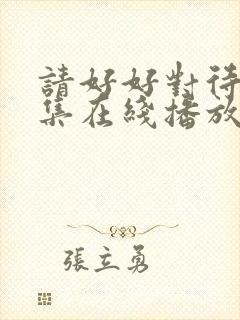 請好好對待
集在綫播放
張立勇